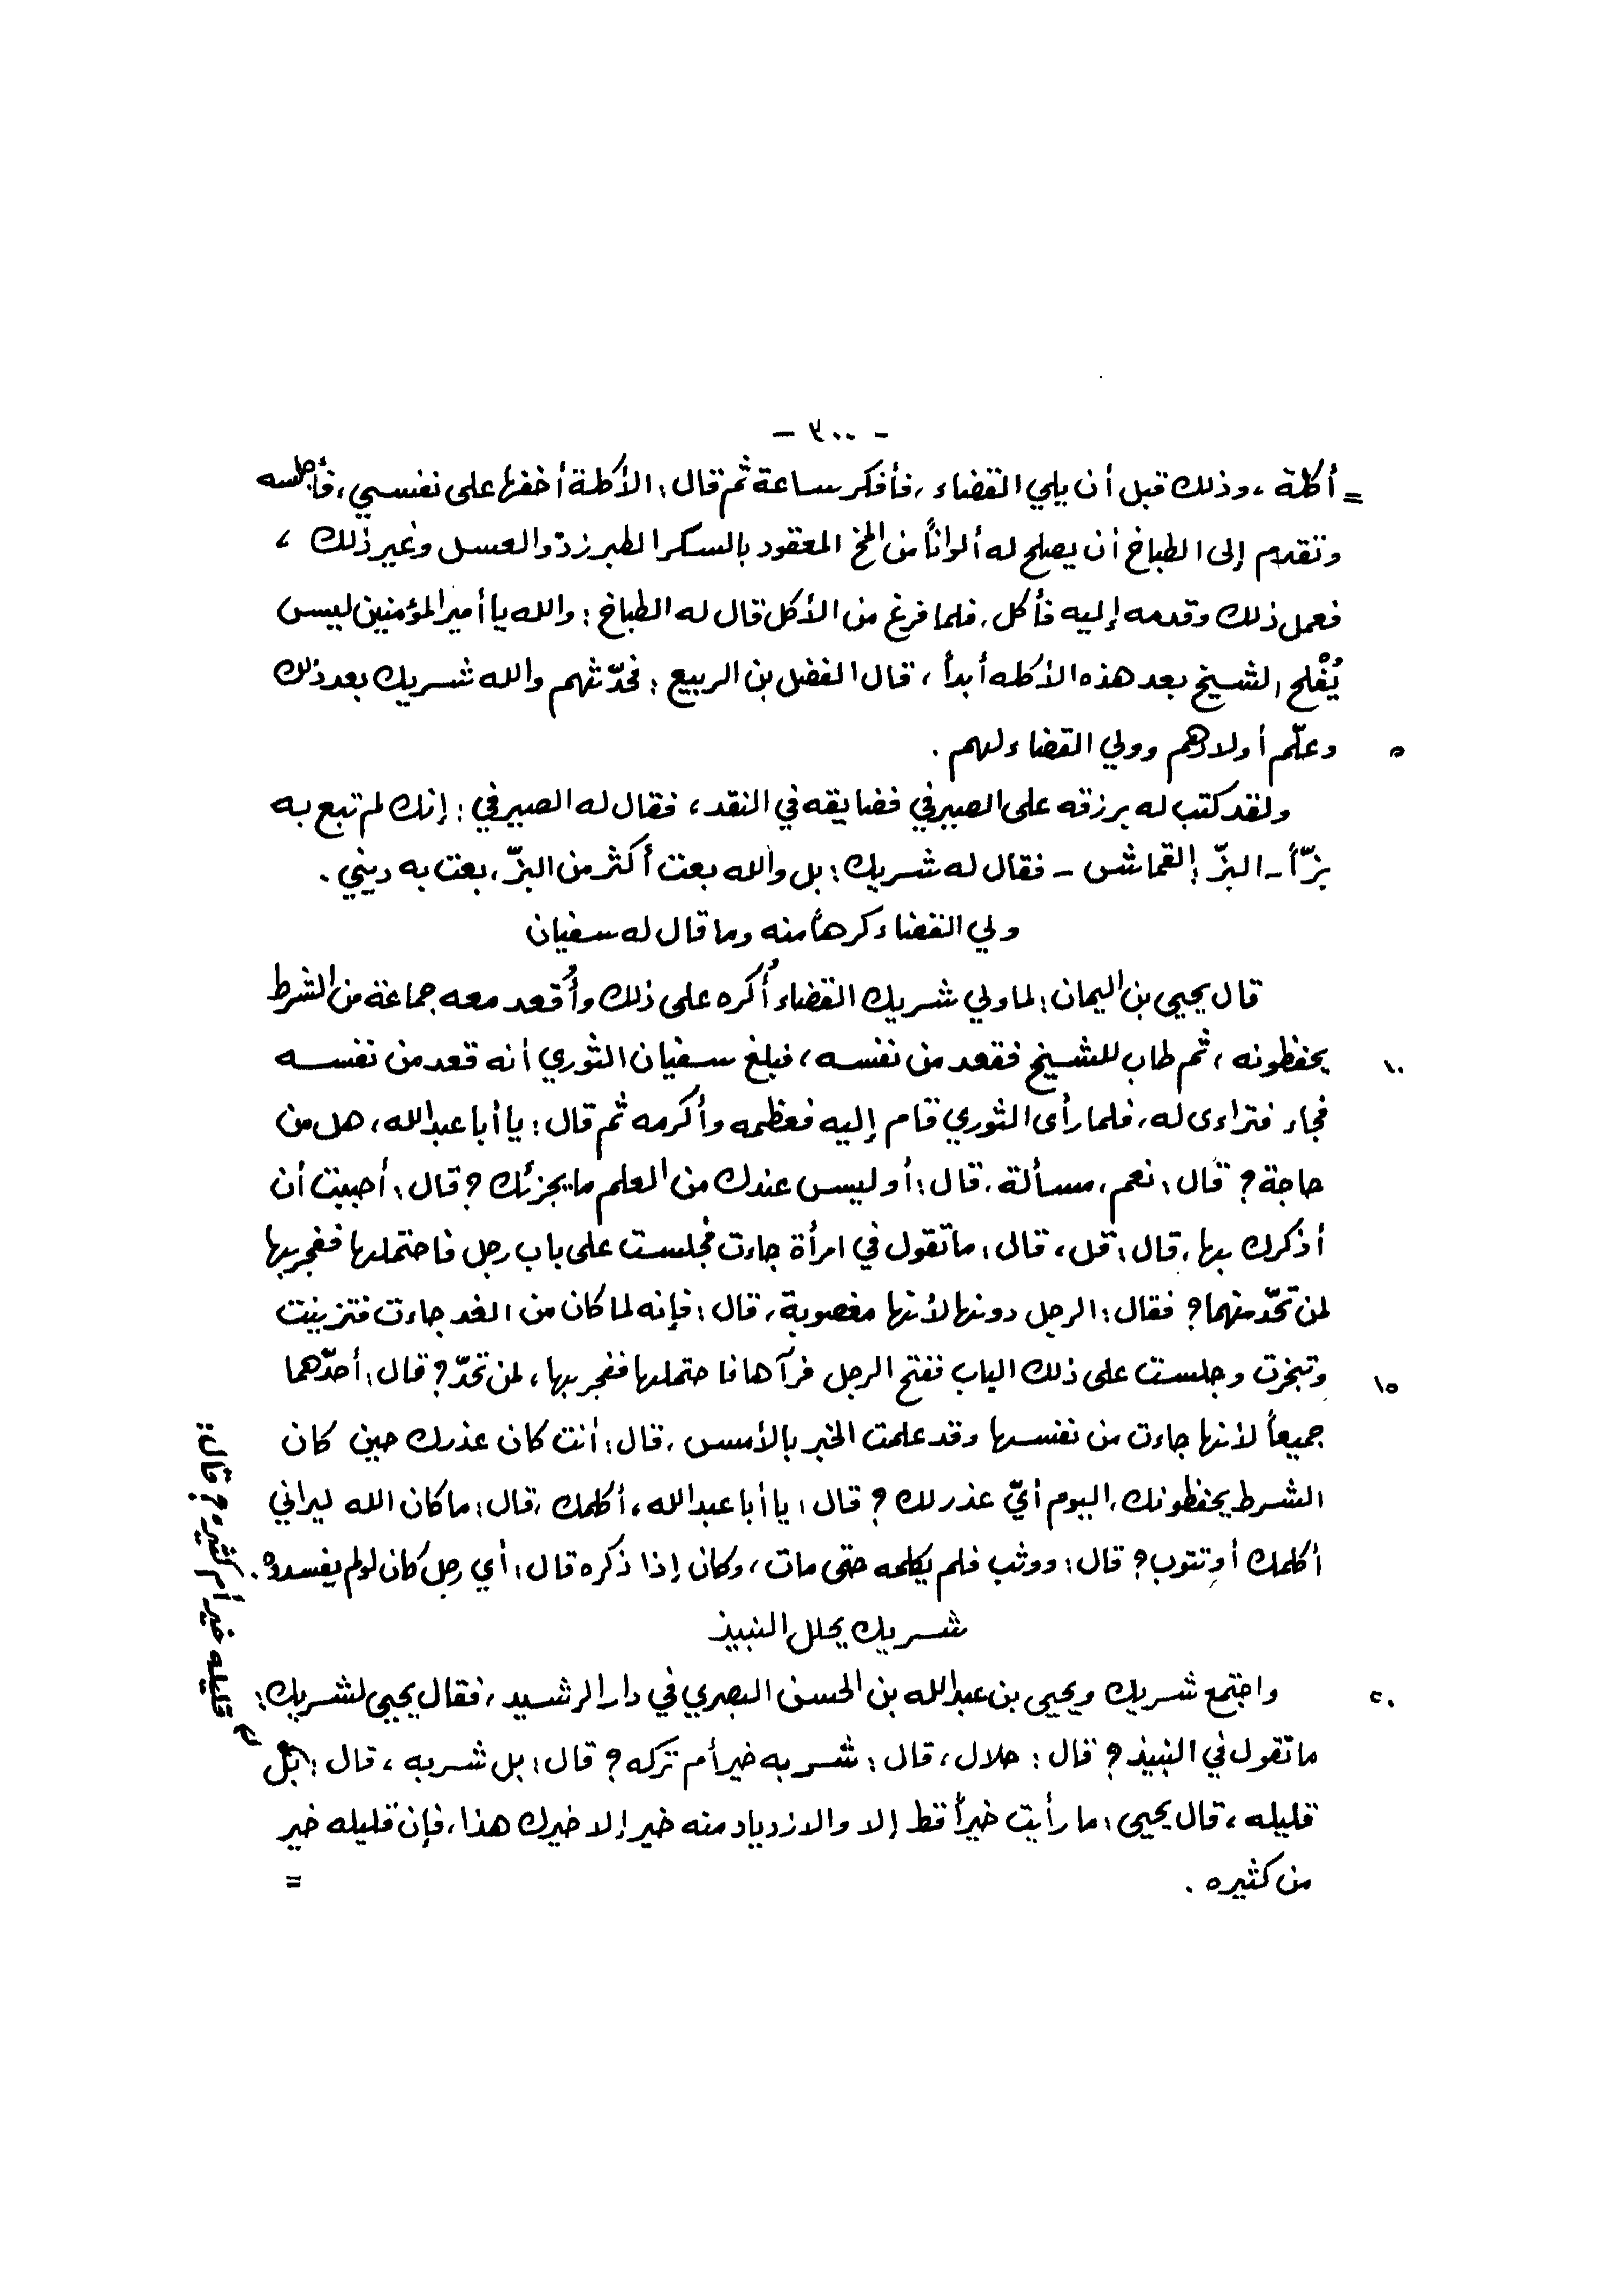 - ٣٠٠ -
= أكلة، وذلك قبل أن يلي القضاء، فأفكر ساعة ثم قال: الأكلة أخفها على نفسي، فأجلسه
وتقدم إلى الطباخ أن يصلح له ألواناً من المخ المعقود بالسكر الطبرزدّ والعسل وغير ذلك،
فعمل ذلك وقدمه إليه فأكل، فلما فرغ من الأكل قال له الطباخ: والله يا أمير المؤمنين ليس
يُفْلح الشيخ بعد هذه الأكله أبداً، قال الفضل بن الربيع: فحدّثهم والله شريك بعد ذلك
٥ وعلّم أولادهم وولي القضاء لهم.
ولقد كتب له برزقه على الصيرفي فضايقه في النقد، فقال له الصيرفي: إنك لم تبع به
بزّاً - البزّ: القماش - فقال له شريك: بل والله بعت أكثر من البزّ، بعت به ديني.
ولي القضاء كرهاً منه وما قال له سفيان
قال يحيى بن اليمان: لما ولي شريك القضاء أُكره على ذلك وأُقعد معه جماعة من الشرط
١٠ يحفظونه، ثم طاب للشيخ فقعد من نفسه، فبلغ سفيان الثوري أنه قعد من نفسه
فجاء فتراءى له، فلما رأى الثوري قام إليه فعظمه وأكرمه ثم قال: يا أبا عبد الله، هل من
حاجة؟ قال: نعم، مسألة، قال: أو ليس عندك من العلم ما يجزئك؟ قال: أحببت أن
أذكرك بها، قال: قل، قال: ما تقول في امرأة جاءت فجلست على باب رجل فاحتملها ففجر بها
لمن تحدّ منهما؟ فقال: الرجل دونها لأنها مغصوبة، قال: فإنه لما كان من الغد جاءت فتزينت
١٥ وتبخرت وجلست على ذلك الباب ففتح الرجل فرآها فاحتملها ففجر بها، لمن تحدّ؟ قال: أحدّهما
جميعاً لأنها جاءت من نفسها وقد علمت الخبر بالأمس، قال: أنت كان عذرك حين كان
الشرط يحفظونك، اليوم أيّ عذر لك؟ قال: يا أبا عبد الله، أكلمك، قال: ما كان الله ليراني
أكلمك أو تتوب؟ قال: ووثب فلم يكلمه حتى مات، وكان إذا ذكره قال: أي رجل كان لو لم يفسدوه.
شريك يحلل النبيذ
٢٠ واجتمع شريك ويحيى بن عبد الله بن الحسن البصري في دار الرشيد، فقال يحيى لشريك:
ما تقول في النبيذ؟ قال: حلال، قال: شربه خير أم تركه؟ قال: بل شربه، قال: بل
قليله خير أم كثيره؟ قال:
قليله، قال يحيى: ما رأيت خيراً قط إلا والازدياد منه خير إلا خيرك هذا، فإن قليله خير
من كثيره. =